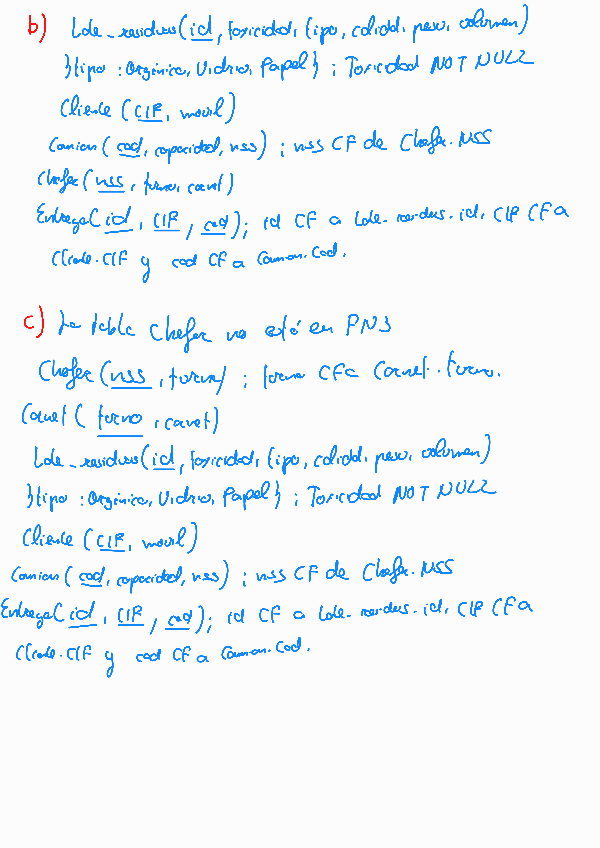 b) Lde_residuos(id, toxicidad, tipo, calidad, peso, volumen)
}tipo : Orgánica, Vidrio, Papel} ; Toxicidad NOT NULL
Cliente (CIF, movil)
Camion( cod, capacidad, nss) ; nss CF de Chofer.NSS
Chofer(nss, turno, carnet)
Entrega( id, CIF, cod); id CF a Lde_residuos.id, CIF CF a
Cliente.CIF y cod CF a Camion.Cod.
c) La tabla Chofer no está en FN3
Chofer(nss, turno) ; turno CF a Carnet.turno.
Carnet( turno, carnet)
Lde_residuos(id, toxicidad, tipo, calidad, peso, volumen)
}tipo : Orgánica, Vidrio, Papel} ; Toxicidad NOT NULL
Cliente (CIF, movil)
Camion( cod, capacidad, nss) ; nss CF de Chofer.NSS
Entrega( id, CIF, cod); id CF a Lde_residuos.id, CIF CF a
Cliente.CIF y cod CF a Camion.Cod.